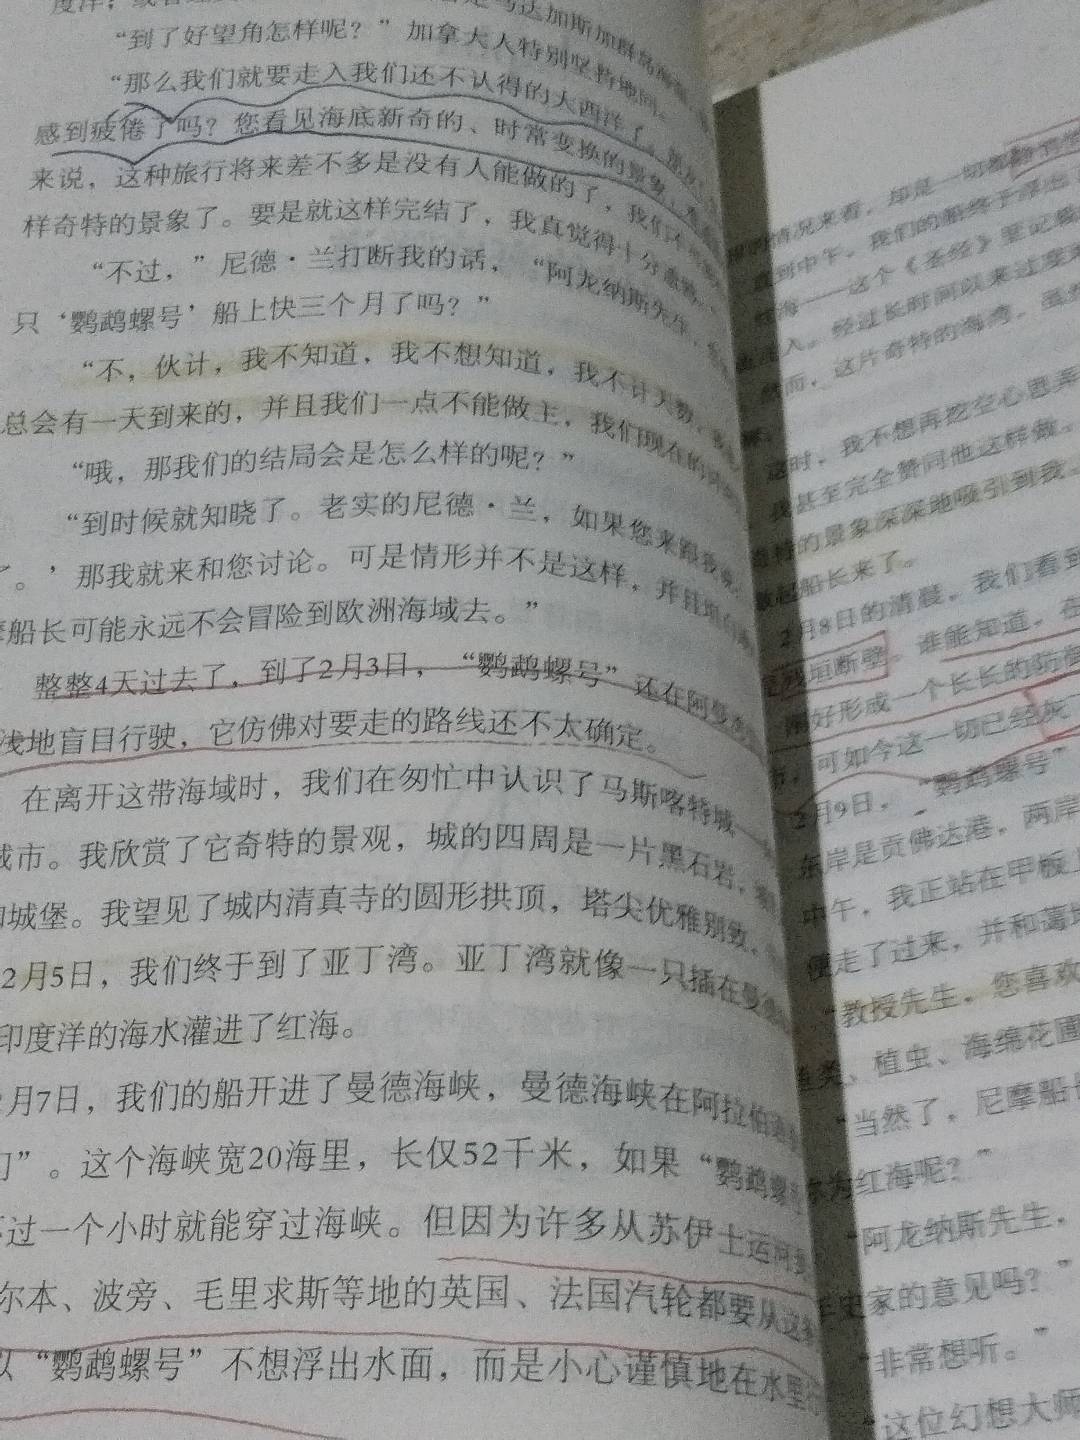 “到了好望角怎样呢？”加拿大人特别坚持地问。
“那么我们就要走入我们还不认得的大西洋了。
感到疲倦了吗？您看见海底新奇的、时常变换的景象，
来说，这种旅行将来差不多是没有人能做的了，我们不
样奇特的景象了。要是就这样完结了，我真觉得十分
“不过，”尼德·兰打断我的话，“阿龙纳斯先生，
只‘鹦鹉螺号’船上快三个月了吗？”
“不，伙计，我不知道，我不想知道，我不计天数，
总会有一天到来的，并且我们一点不能做主，我们现在的
“哦，那我们的结局会是怎么样的呢？”
“到时候就知晓了。老实的尼德·兰，如果您来跟我
。’那我就来和您讨论。可是情形并不是这样，并且
船长可能永远不会冒险到欧洲海域去。”
整整4天过去了，到了2月3日，“鹦鹉螺号”还在阿曼
浅地盲目行驶，它仿佛对要走的路线还不太确定。
在离开这带海域时，我们在匆忙中认识了马斯喀特城
城市。我欣赏了它奇特的景观，城的四周是一片黑石岩，
城堡。我望见了城内清真寺的圆形拱顶，塔尖优雅别致，
2月5日，我们终于到了亚丁湾。亚丁湾就像一只插在曼德
印度洋的海水灌进了红海。
月7日，我们的船开进了曼德海峡，曼德海峡在阿拉伯
”。这个海峡宽20海里，长仅52千米，如果“鹦鹉螺
过一个小时就能穿过海峡。但因为许多从苏伊士运河
尔本、波旁、毛里求斯等地的英国、法国汽轮都要从这
以“鹦鹉螺号”不想浮出水面，而是小心谨慎地在水里
情况来看，却是一切都
直到中午，我们的船终于浮出
海——这个《圣经》里记载
入。经过长时间以来过度
然而，这片奇特的海湾，虽然
这时，我不想再挖空心思弄
我甚至完全赞同他这样做。
奇特的景象深深地吸引到我
船长来了。
2月8日的清晨，我们看到
残垣断壁。谁能知道，在
刚好形成一个长长的防
可如今这一切已经灰
2月9日，“鹦鹉螺号”
东岸是贡佛达港，两岸
中午，我正站在甲板上
便走了过来，并和蔼地
“教授先生，您喜欢
类、植虫、海绵花圃
“当然了，尼摩船长
为红海呢？”
“阿龙纳斯先生，
史家的意见吗？”
“非常想听。”
“这位幻想大师